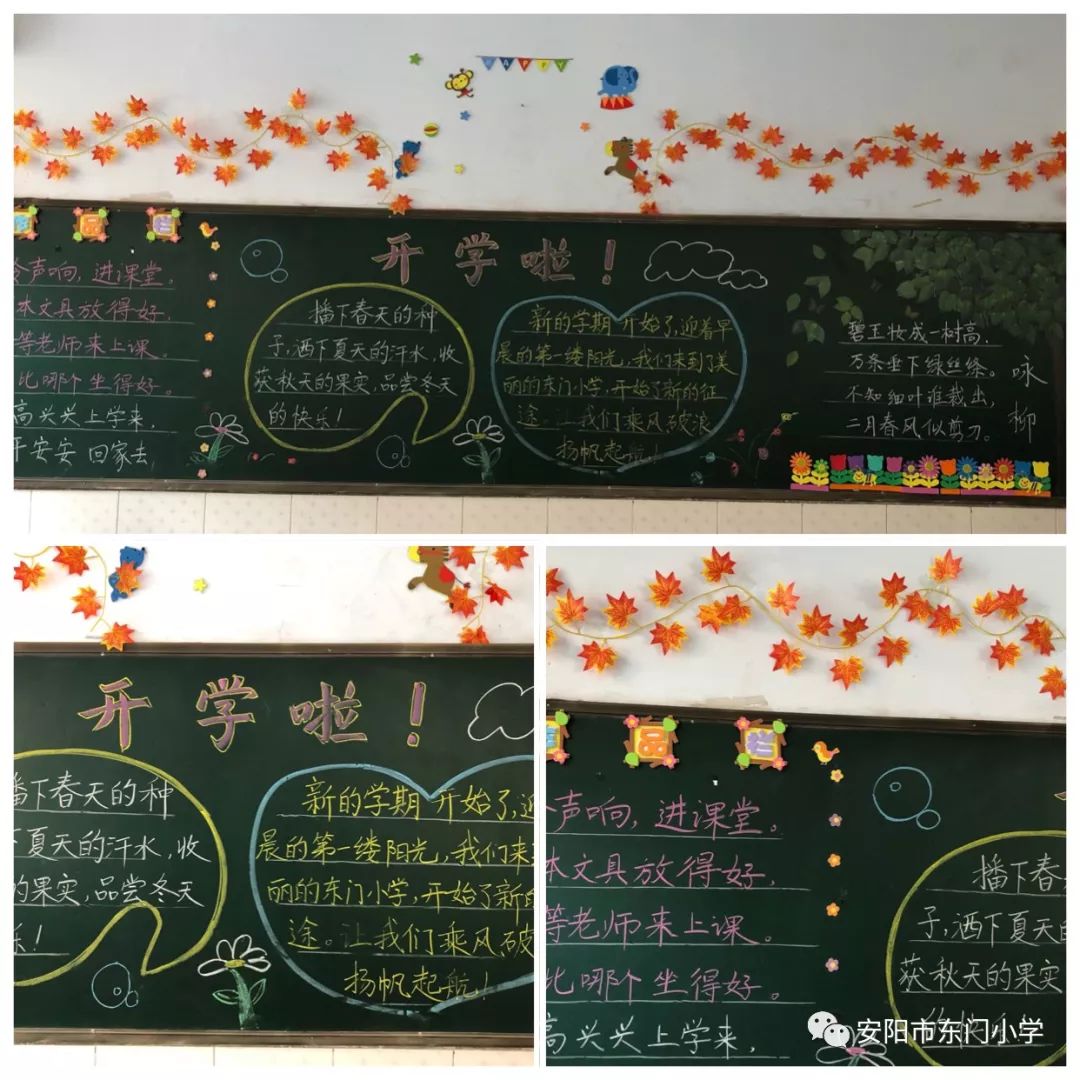 HAPPY
品栏
声响,进课堂。
本文具放得好,
等老师来上课。
比哪个坐得好。
高兴兴上学来,
平安安 回家去
开学啦!
播下春天的种
子,洒下夏天的汗水,收
获秋天的果实,品尝冬天
的快乐!
新的学期开始了,迎着早
晨的第一缕阳光,我们来到了美
丽的东门小学,开始了新的征
途。让我们乘风破浪
扬帆起航!
碧玉妆成一树高,
万条垂下绿丝绦。
不知细叶谁裁出,
二月春风似剪刀。
咏柳
开学啦!
播下春天的种
下夏天的汗水,收
的果实,品尝冬天
乐!
新的学期开始了,迎
晨的第一缕阳光,我们来到
丽的东门小学,开始了新的
途。让我们乘风破
扬帆起航!
品栏
声响,进课堂。
本文具放得好,
等老师来上课。
比哪个坐得好。
高兴兴上学来,
播下春
子,洒下夏天的
获秋天的果实
的快乐!
安阳市东门小学